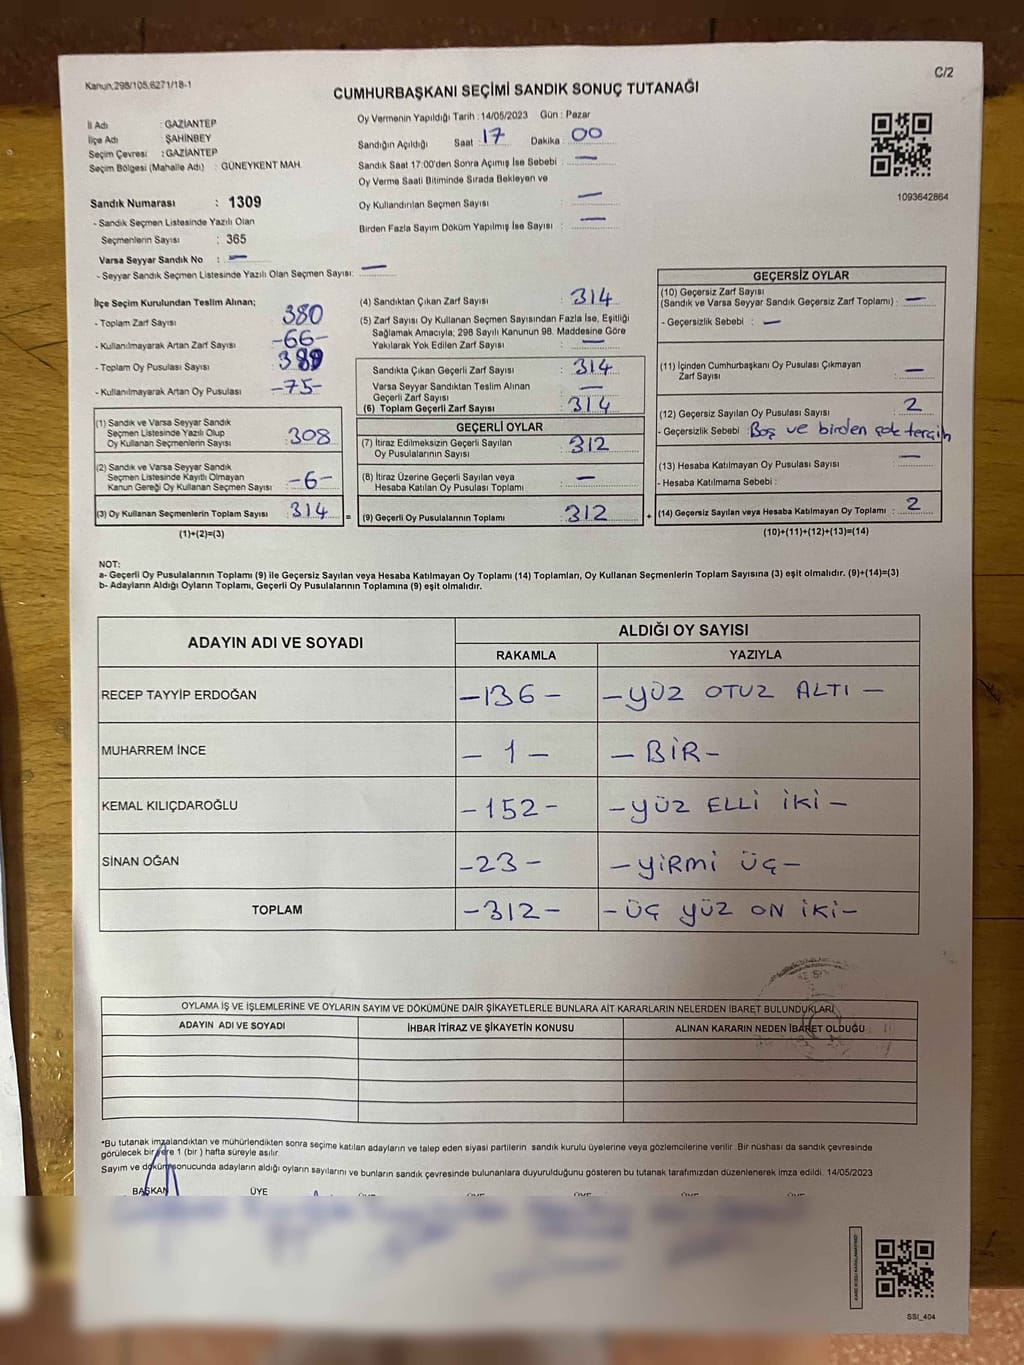 Kanun;298/105,6271/18-1
C/2
CUMHURBAŞKANI SEÇİMİ SANDIK SONUÇ TUTANAĞI
İl Adı : GAZİANTEP
İlçe Adı : ŞAHİNBEY
Seçim Çevresi : GAZİANTEP
Seçim Bölgesi (Mahalle Adı) : GÜNEYKENT MAH.
Sandık Numarası : 1309
- Sandık Seçmen Listesinde Yazılı Olan
Seçmenlerin Sayısı : 365
Varsa Seyyar Sandık No : —
- Seyyar Sandık Seçmen Listesinde Yazılı Olan Seçmen Sayısı: —
Oy Vermenin Yapıldığı Tarih : 14/05/2023 Gün : Pazar
Sandığın Açıldığı Saat 17 Dakika 00
Sandık Saat 17:00'den Sonra Açımış İse Sebebi : —
Oy Verme Saati Bitiminde Sırada Bekleyen ve
Oy Kullandırılan Seçmen Sayısı —
Birden Fazla Sayım Döküm Yapılmış İse Sayısı : —
1093642864
İlçe Seçim Kurulundan Teslim Alınan;
- Toplam Zarf Sayısı 380
- Kullanılmayarak Artan Zarf Sayısı -66-
- Toplam Oy Pusulası Sayısı
- Kullanılmayarak Artan Oy Pusulası -75-
(1) Sandık ve Varsa Seyyar Sandık
Seçmen Listesinde Yazılı Olup
Oy Kullanan Seçmenlerin Sayısı : 308
(2) Sandık ve Varsa Seyyar Sandık
Seçmen Listesinde Kayıtlı Olmayan
Kanun Gereği Oy Kullanan Seçmen Sayısı : -6-
(3) Oy Kullanan Seçmenlerin Toplam Sayısı : 314 =
(1)+(2)=(3)
(4) Sandıktan Çıkan Zarf Sayısı : 314
(5) Zarf Sayısı Oy Kullanan Seçmen Sayısından Fazla İse, Eşitliği
Sağlamak Amacıyla; 298 Sayılı Kanunun 98. Maddesine Göre
Yakılarak Yok Edilen Zarf Sayısı : —
Sandıkta Çıkan Geçerli Zarf Sayısı : 314
Varsa Seyyar Sandıktan Teslim Alınan
Geçerli Zarf Sayısı : —
(6) Toplam Geçerli Zarf Sayısı : 314
GEÇERLİ OYLAR
(7) İtiraz Edilmeksizin Geçerli Sayılan
Oy Pusulalarının Sayısı : 312
(8) İtiraz Üzerine Geçerli Sayılan veya
Hesaba Katılan Oy Pusulası Toplamı : —
(9) Geçerli Oy Pusulalarının Toplamı : 312 +
GEÇERSİZ OYLAR
(10) Geçersiz Zarf Sayısı
(Sandık ve Varsa Seyyar Sandık Geçersiz Zarf Toplamı) : —
- Geçersizlik Sebebi : —
(11) İçinden Cumhurbaşkanı Oy Pusulası Çıkmayan
Zarf Sayısı : —
(12) Geçersiz Sayılan Oy Pusulası Sayısı : 2
- Geçersizlik Sebebi : Boş ve birden çok tercih
(13) Hesaba Katılmayan Oy Pusulası Sayısı : —
- Hesaba Katılmama Sebebi :
(14) Geçersiz Sayılan veya Hesaba Katılmayan Oy Toplamı : 2
(10)+(11)+(12)+(13)=(14)
NOT:
a- Geçerli Oy Pusulalarının Toplamı (9) ile Geçersiz Sayılan veya Hesaba Katılmayan Oy Toplamı (14) Toplamları, Oy Kullanan Seçmenlerin Toplam Sayısına (3) eşit olmalıdır. (9)+(14)=(3)
b- Adayların Aldığı Oyların Toplamı, Geçerli Oy Pusulalarının Toplamına (9) eşit olmalıdır.
ADAYIN ADI VE SOYADI
ALDIĞI OY SAYISI
RAKAMLA YAZIYLA
RECEP TAYYİP ERDOĞAN -136- -YÜZ OTUZ ALTI-
MUHARREM İNCE -1- -BİR-
KEMAL KILIÇDAROĞLU -152- -YÜZ ELLİ İKİ-
SİNAN OĞAN -23- -YİRMİ ÜÇ-
TOPLAM -312- -ÜÇ YÜZ ON İKİ-
OYLAMA İŞ VE İŞLEMLERİNE VE OYLARIN SAYIM VE DÖKÜMÜNE DAİR ŞİKAYETLERLE BUNLARA AİT KARARLARIN NELERDEN İBARET BULUNDUKLARI
ADAYIN ADI VE SOYADI İHBAR İTİRAZ VE ŞİKAYETİN KONUSU ALINAN KARARIN NEDEN İBARET OLDUĞU
*Bu tutanak imzalandıktan ve mühürlendikten sonra seçime katılan adayların ve talep eden siyasi partilerin sandık kurulu üyelerine veya gözlemcilerine verilir. Bir nüshası da sandık çevresinde
görülecek bir yere 1 (bir ) hafta süreyle asılır.
Sayım ve döküm sonucunda adayların aldığı oyların sayılarını ve bunların sandık çevresinde bulunanlara duyurulduğunu gösteren bu tutanak tarafımızdan düzenlenerek imza edildi. 14/05/2023
BAŞKAN ÜYE
SSI_404